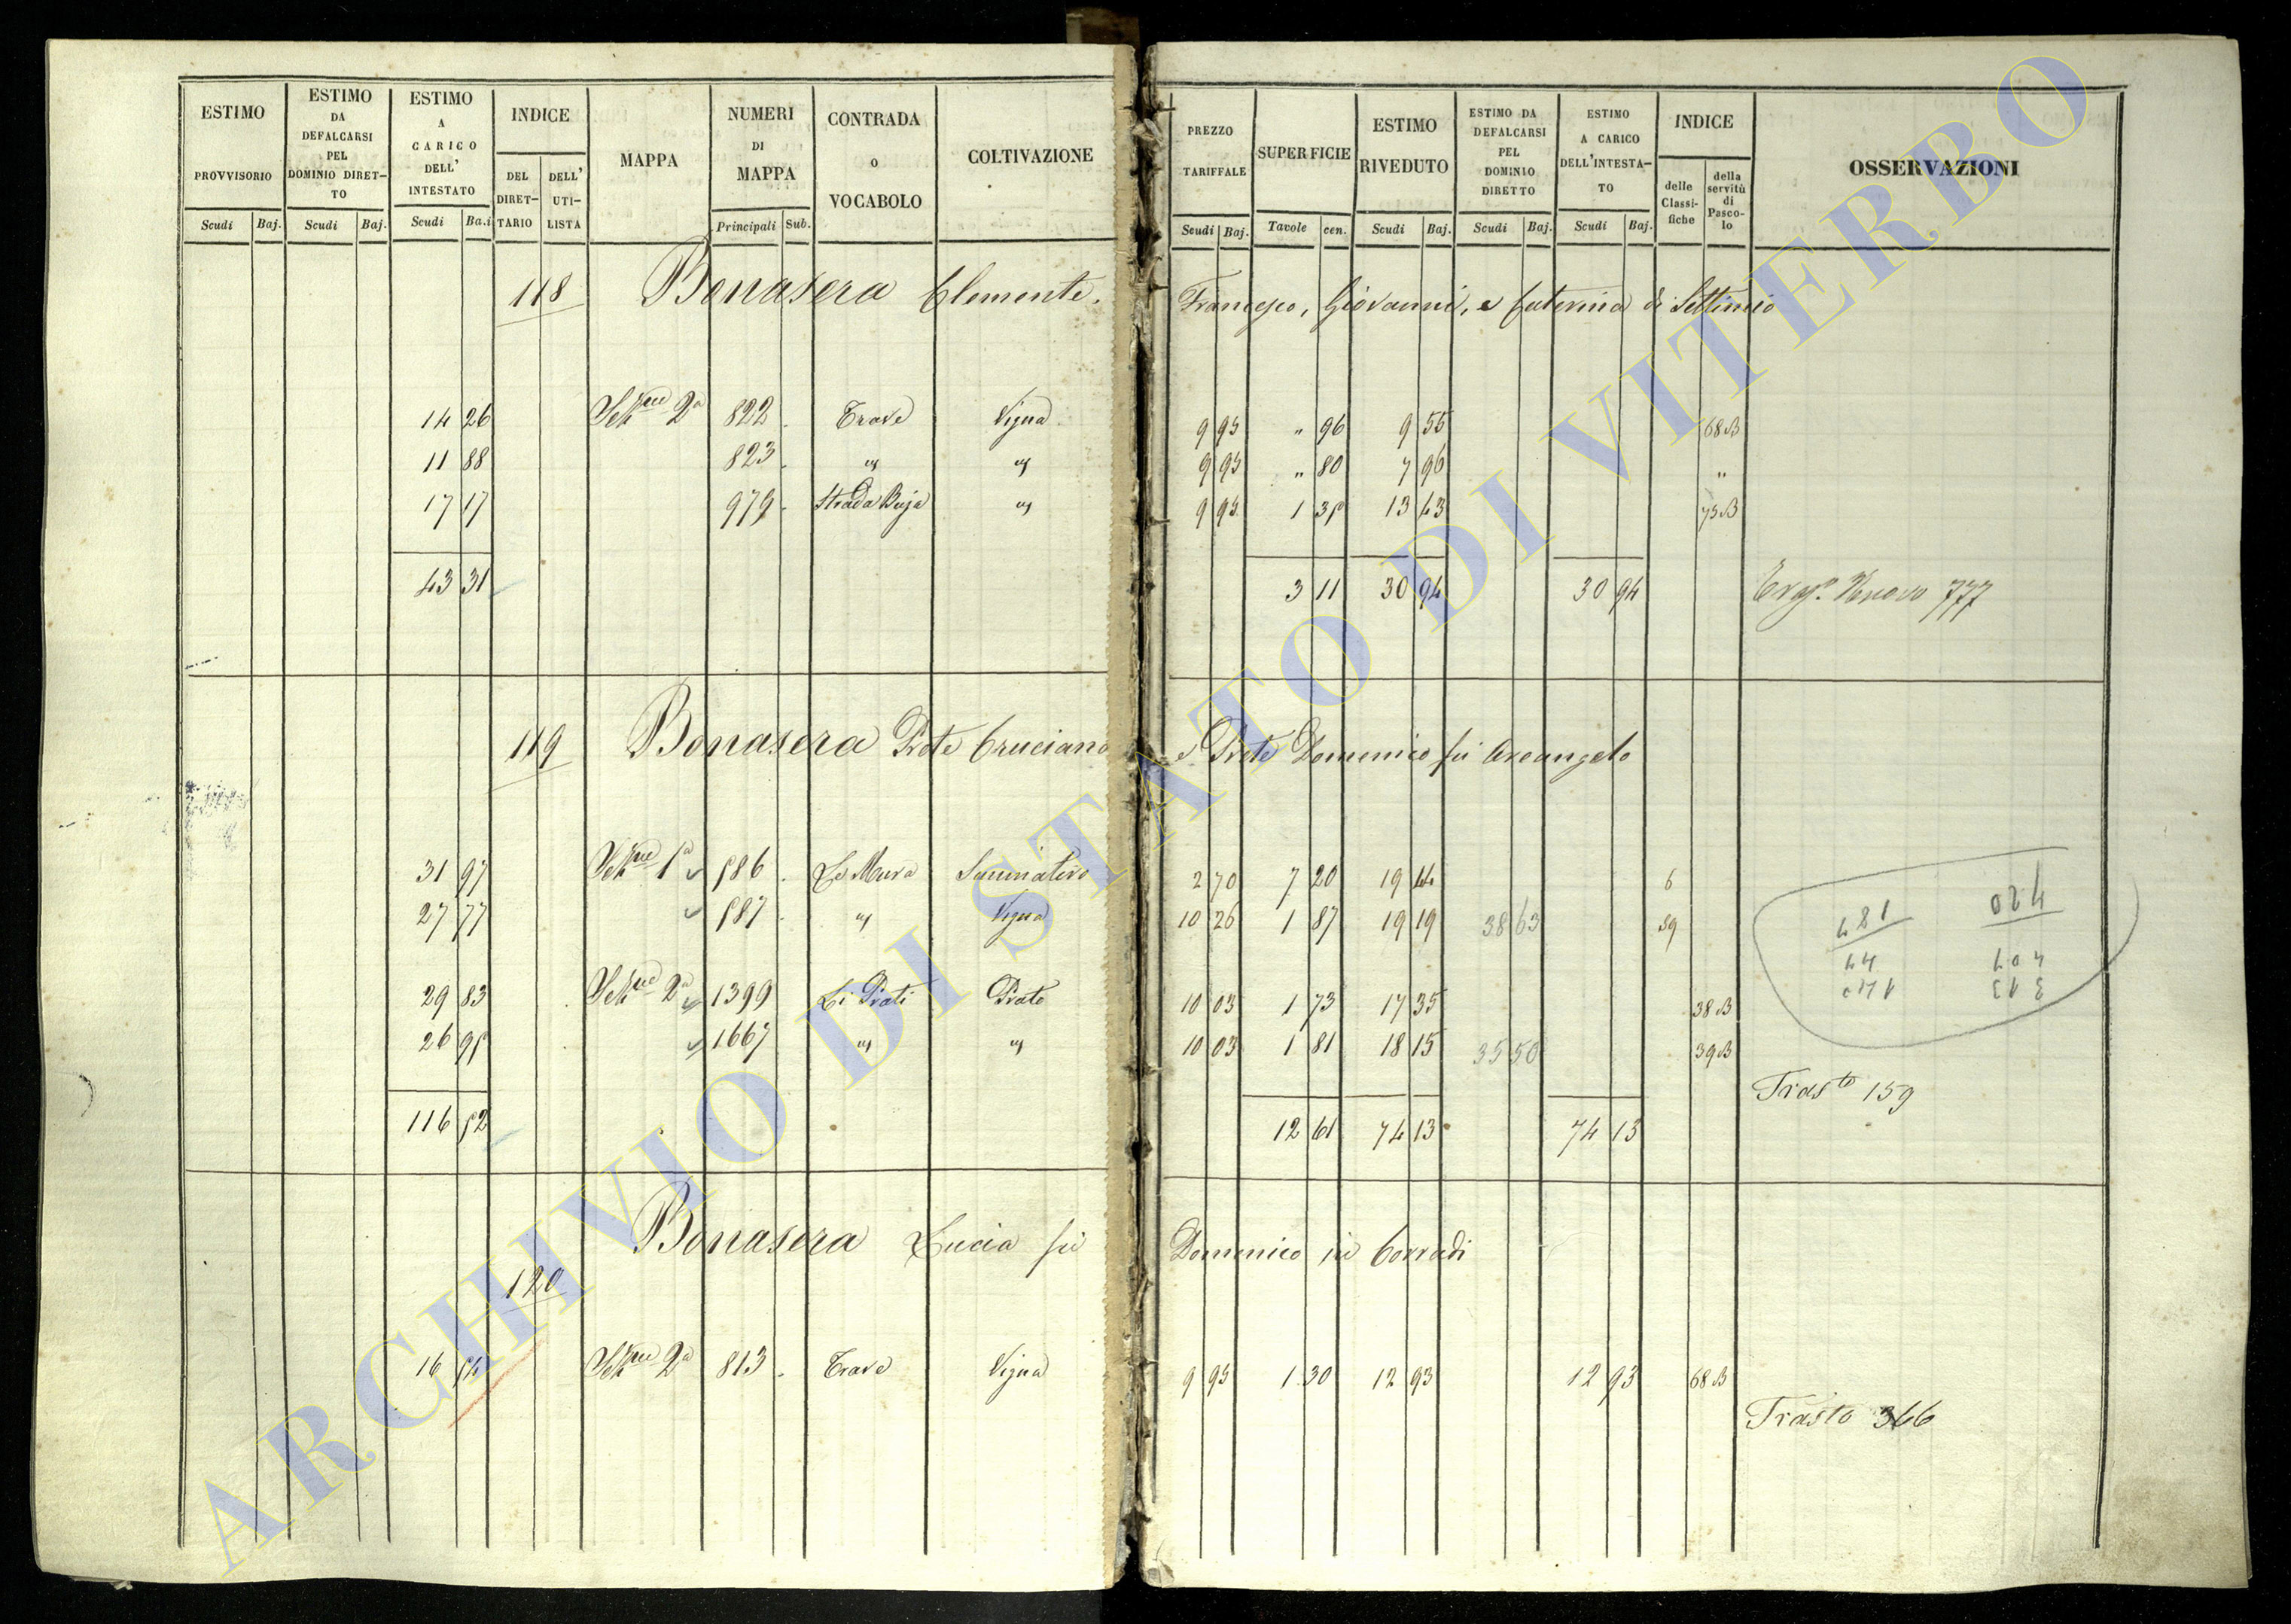 ESTIMO PROVVISORIO
Scudi Baj.
ESTIMO DA DEFALCARSI PEL DOMINIO DIRET-TO
Scudi Baj.
ESTIMO A CARICO DELL' INTESTATO
Scudi Ba.i
INDICE
DEL DIRET-TARIO
DELL' UTI-LISTA
MAPPA
NUMERI DI MAPPA
Principali Sub.
CONTRADA O VOCABOLO
COLTIVAZIONE
PREZZO TARIFFALE
Scudi Baj.
SUPERFICIE
Tavole cen.
ESTIMO RIVEDUTO
Scudi Baj.
ESTIMO DA DEFALCARSI PEL DOMINIO DIRETTO
Scudi Baj.
ESTIMO A CARICO DELL'INTESTA-TO
Scudi Baj.
INDICE
delle Classi-fiche
della servitù di Pasco-lo
OSSERVAZIONI
118 Bonasera Clemente, Francesco, Giovanni, e Caterina di Settimio
14 26 Sezne 2a 822 Trave Vigna 9 95 " 96 9 55 68 B
11 88 823 " " 9 95 " 80 7 96 "
17 17 979 Strada Buja " 9 95 1 35 13 43 73 B
43 31 3 11 30 94 30 94 Nuovo 777
119 Bonasera Prete Cruciano e Prete Domenico fu Arcangelo
31 97 Sezne 1a 586 Le Mura Seminativo 2 70 7 20 19 44 6
27 77 587 " Vigna 10 26 1 87 19 19 38 63 59
29 83 Sezne 2a 1399 Li Prati Prato 10 03 1 73 17 35 38 B
26 95 1667 " " 10 03 1 81 18 15 35 50 39 B
720 187
407 44
313
Trasto 159
116 52 12 61 74 13 74 13
Bonasera Lucia fu Domenico in Corradi
120
16 54 Sezne 2a 813 Trave Vigna 9 95 1 30 12 93 12 93 68 B
Trasto 366
ARCHIVIO DI STATO DI VITERBO